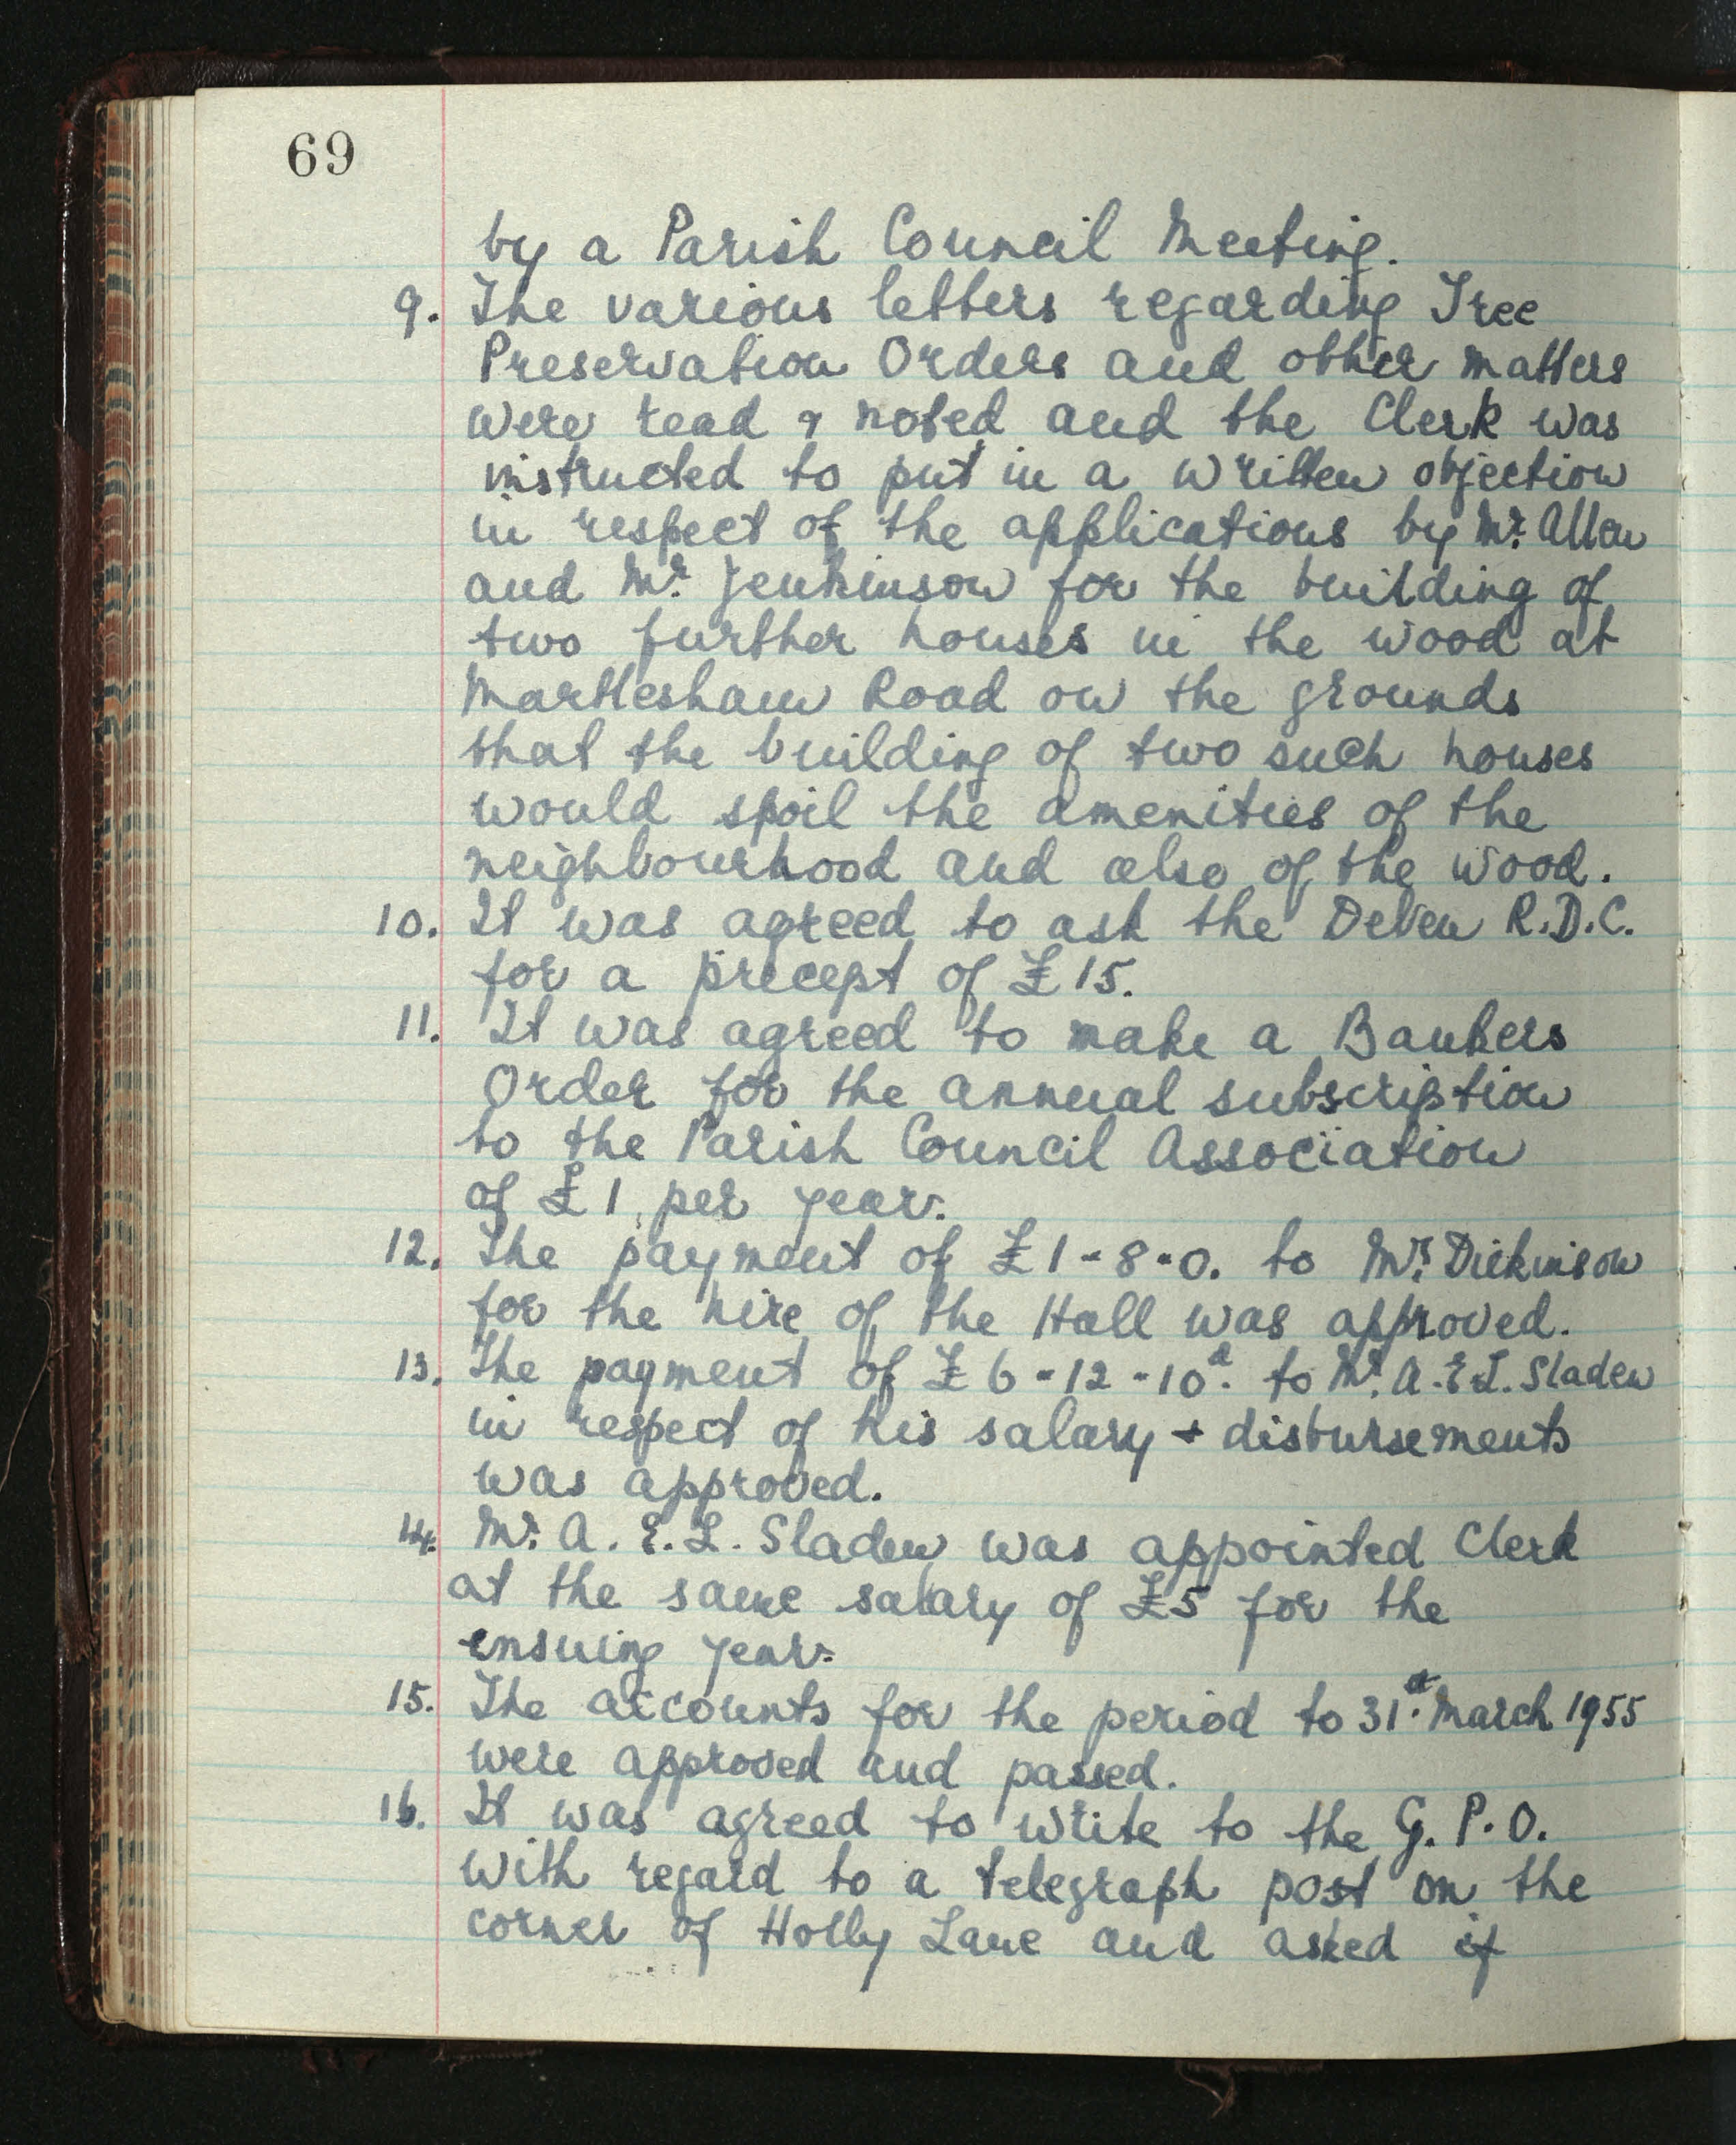 69
by a Parish Council Meeting.
9. The various letters regarding Tree
Preservation Orders and other matters
were read & noted and the Clerk was
instructed to put in a written objection
in respect of the applications by Mr. Allen
and Mr. Jenkinson for the building of
two further houses in the wood at
Martlesham Road on the grounds
that the building of two such houses
would spoil the amenities of the
neighbourhood and also of the wood.
10. It was agreed to ask the Deben R.D.C.
for a precept of £15.
11. It was agreed to make a Bankers
Order for the annual subscription
to the Parish Council Association
of £1 per year.
12. The payment of £1-8-0. to Mr. Dickinson
for the hire of the Hall was approved.
13. The payment of £6-12-10d. to Mr. A.E.L. Sladen
in respect of his salary + disbursements
was approved.
14. Mr. A. E. L. Sladen was appointed Clerk
at the same salary of £5 for the
ensuing year.
15. The accounts for the period to 31st. March 1955
were approved and passed.
16. It was agreed to write to the G. P. O.
with regard to a telegraph post on the
corner of Holly Lane and asked if